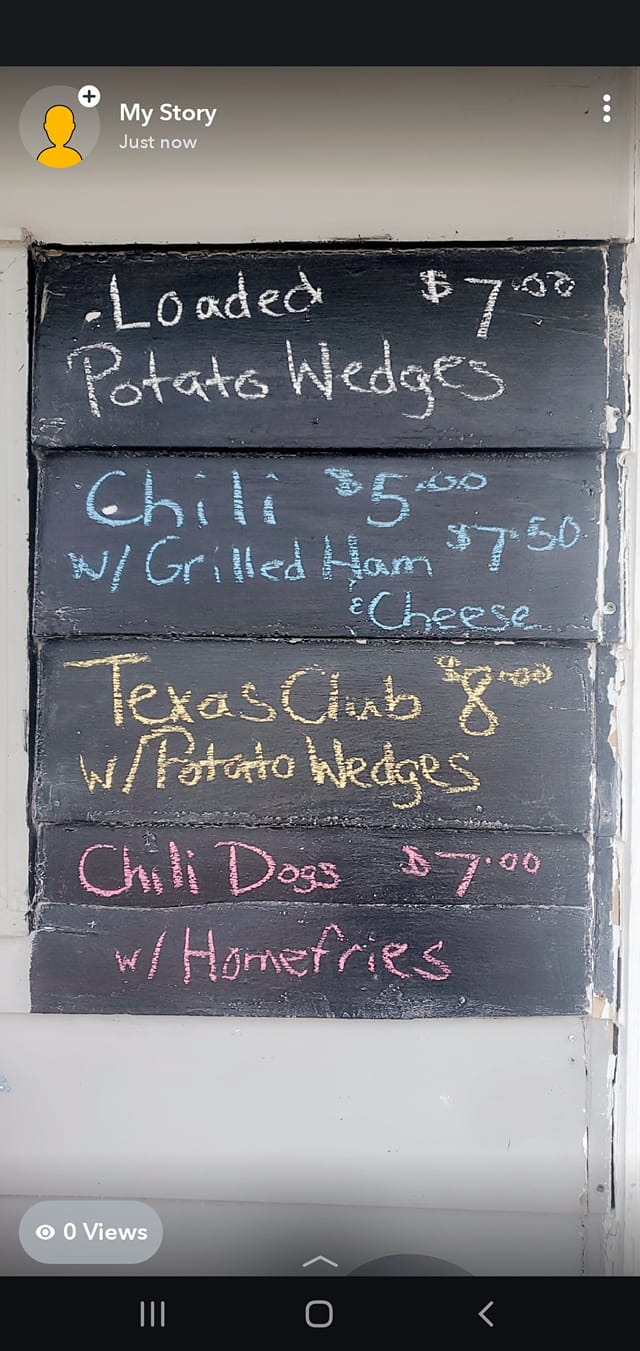 My Story
Just now
Loaded $7.00
Potato Wedges
Chili $5.00
w/ Grilled Ham $7.50
& Cheese
Texas Club $8.00
w/ Potato Wedges
Chili Dogs $7.00
w/ Homefries
0 Views